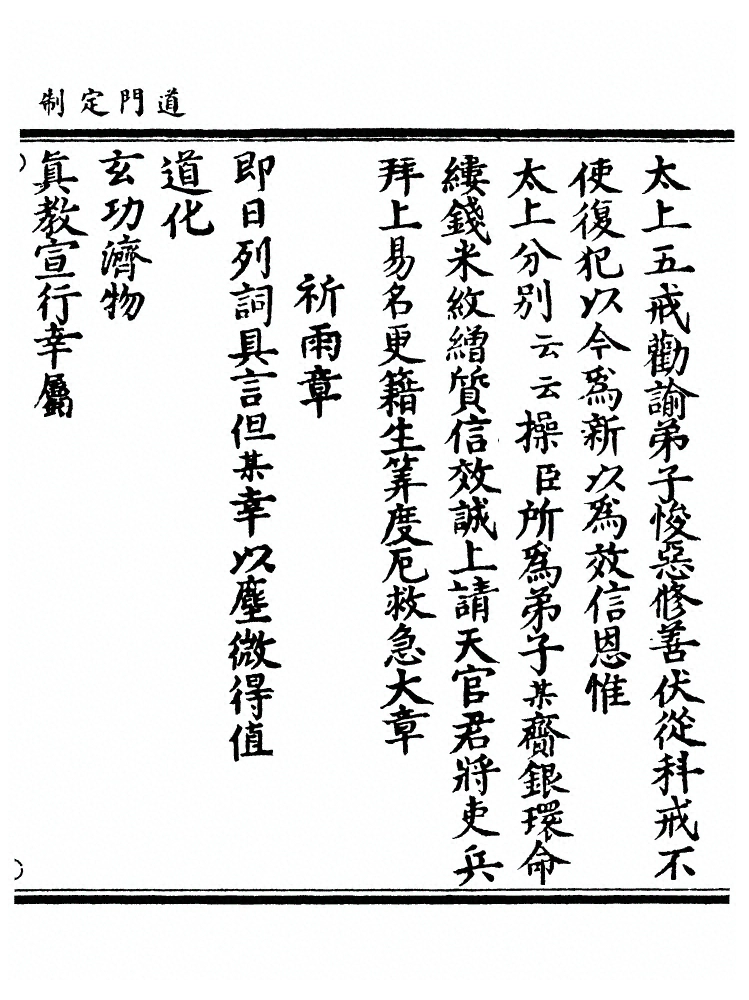 道門定制
太上五戒勸諭弟子悛惡修善伏從科戒不
使復犯以今爲新以爲效信恩惟
太上分別云云操臣所爲弟子某齎銀環命
縷錢米紋繒質信效誠上請天官君將吏兵
拜上易名更籍生筭度厄救急大章
祈雨章
即日列詞具言但某幸以塵微得值
道化
玄功濟物
眞教宣行幸屬